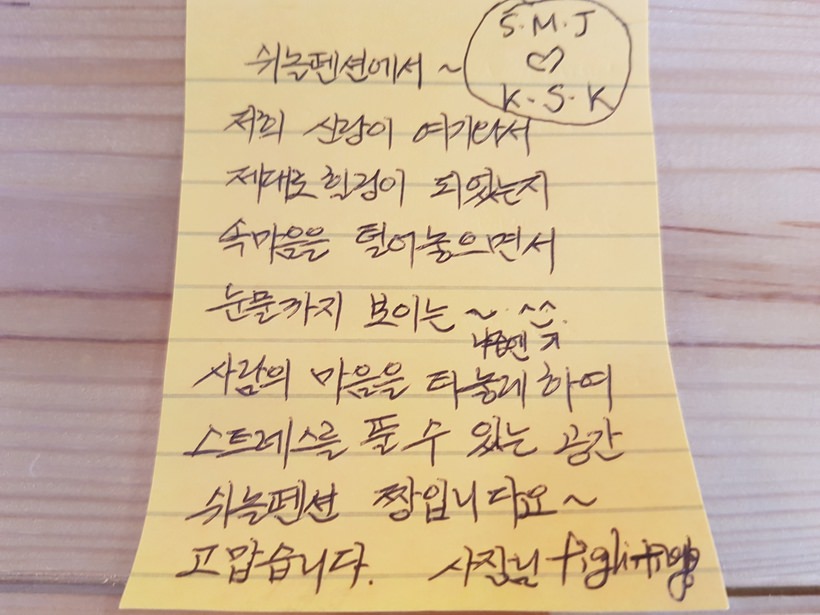 S.M.J
♡
K.S.K
쉬놀펜션에서~
저희 신랑이 여기와서
제대로 힐링이 되었는지
속마음을 털어놓으면서
눈물까지 보이는~ ^^.
사람의 마음을 타놓게 하여
스트레스를 풀 수 있는 공간
쉬놀펜션 짱입니다요~
고맙습니다. 사장님